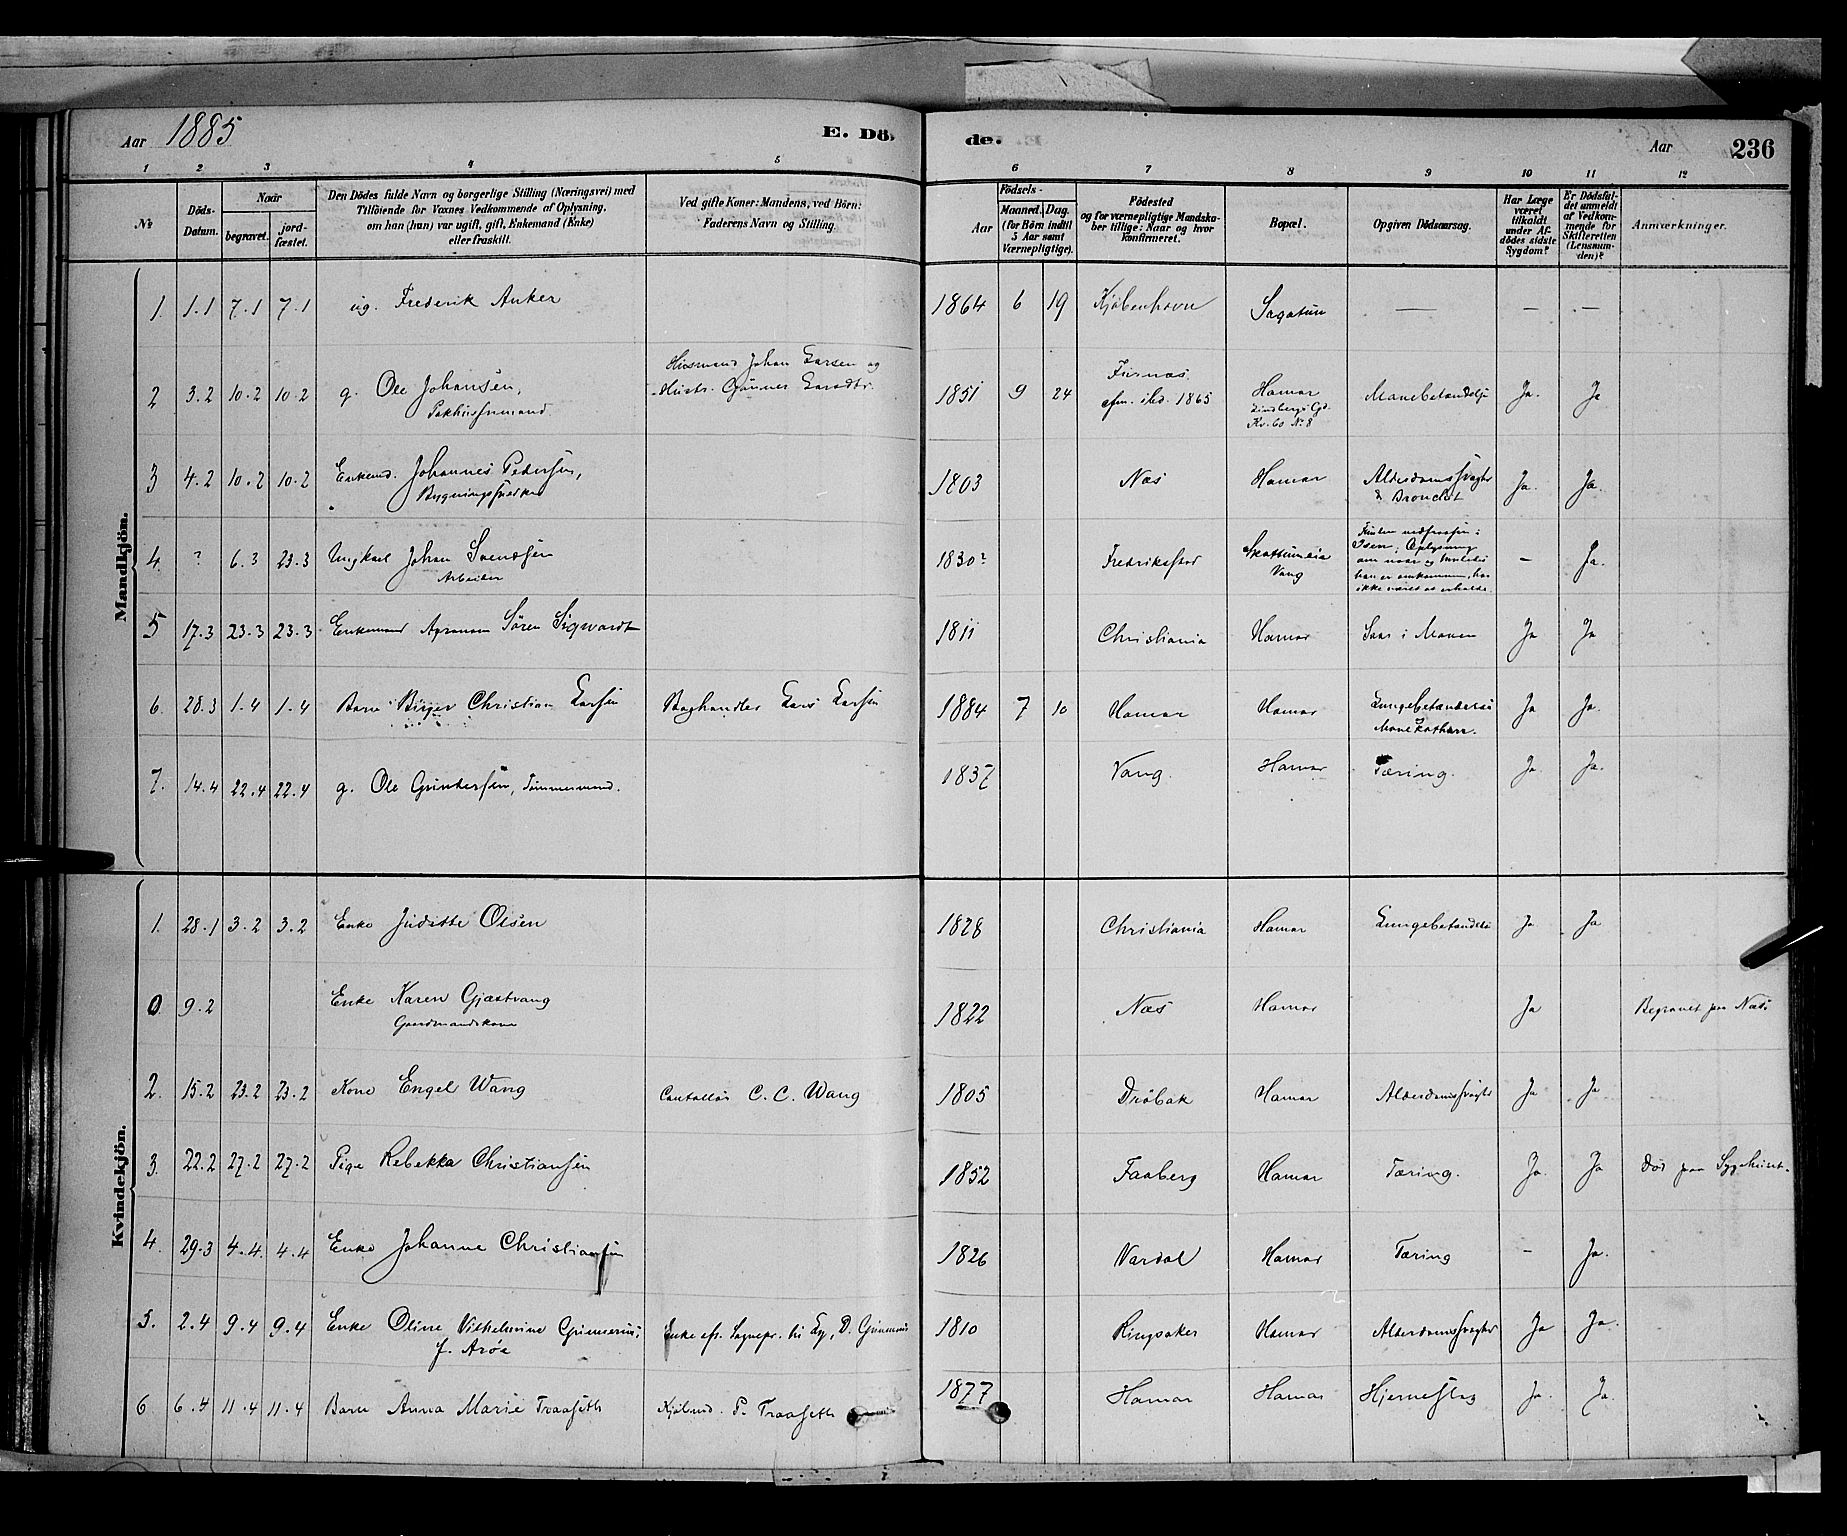 Aar 1885 E. Dö- de. Aar 236
1 2 3 4 5 6 7 8 9 10 11 12
No. Döds-Datum. Naar begravet. jordfæstet. Den Dödes fulde Navn og borgerlige Stilling (Næringsvei) med Tilföiende for Voxnes Vedkommende af Oplysning, om han (hun) var ugift, gift, Enkemand (Enke) eller fraskilt. Ved gifte Koner: Mandens, ved Börn: Faderens Navn og Stilling. Födsels- Aar Maaned. Dag. (for Börn indtil 5 Aar samt Værnepligtige). Födested og for værnepligtige Mandskaber tillige: Naar og hvor Konfirmeret. Bopæl. Opgiven Dödsaarsag. Har Læge været tilkaldt under Afdödes sidste Sygdom? Er Dödsfaldet anmeldt af Vedkommende for Skifteretten (Lensmanden)? Anmærkninger.
Mandkjön.
1. 1.1 7.1 7.1 ug. Frederik Anker 1864 6 19 Kjöbenhavn Sagatun — — —
2 3.2 10.2 10.2 g. Ole Johansen, Pakhusformand Husmand Johan Larsen og Hustr. Gunner Larsdtr. 1851 9 24 Furnæs, cfm. ibd. 1865 Hamar Lindbergs Gd. Kv. 60 No 8 Mavebetændelse Ja. Ja
3 4.2 10.2 10.2 Enkemd. Johannes Pedersen, 1803 Næs Hamar Alderdomssvaghed & Bronchit Ja. Ja.
4. ? 6.3 23.3 Ungkael Johan Svendsen Arbeider 1830? Fredrikstad Vang Funden nedfrossen i Isen; Oplysning om naar og hvorledes han er omkommen, har ikke været at erholde. — Ja.
5 17.3 23.3 23.3 Enkemand Agronom Sören Sigwardt 1811 Christiania Hamar Saar i Maven Ja Ja
6. 28.3 1.4 1.4 Barn Birger Christian Larsen Boghandler Lars Larsen 1884 7 10 Hamar Hamar Lungebetændelse Mavekatharr. Ja Ja.
7. 14.4 22.4 22.4 g. Ole Gundersen, Tömmermand. 1837 Vang. Hamar Tæring. Ja Ja.
Kvindekjön.
1. 28.1 3.2 3.2 Enke Juditte Olsen 1828 Christiania Hamar Lungebetændelse Ja Ja
0 9.2 Enke Karen Gjæstvang Gaardmandskone 1822 Næs Hamar Ja Begravet paa Næs.
2. 15.2 23.2 23.2 Kone Engel Wang C. C. Wang 1805 Dröbak Hamar Alderdomssvaghed Ja Ja
3. 22.2 27.2 27.2 Pige Rebekka Christiansen 1852 Faaberg Hamar Tæring. Ja. Ja Död paa Sygehuset.
4. 29.3 4.4. 4.4 Enke Johanne Christiansen 1826 Vardal Hamar Tæring — Ja.
5. 2.4 9.4 9.4 Enke Oline Vilhelmine Gunnerus, f. Aröe Enke eft. Sognepr. til Ey, D. Gunnerus 1810 Ringsaker Hamar Alderdomssvaghed Ja Ja.
6 6.4 11.4 11.4 Barn Anna Marie Traaseth Kjöbmd. P. Traaseth 1877 Hamar Hamar Hjerneslag Ja. Ja.